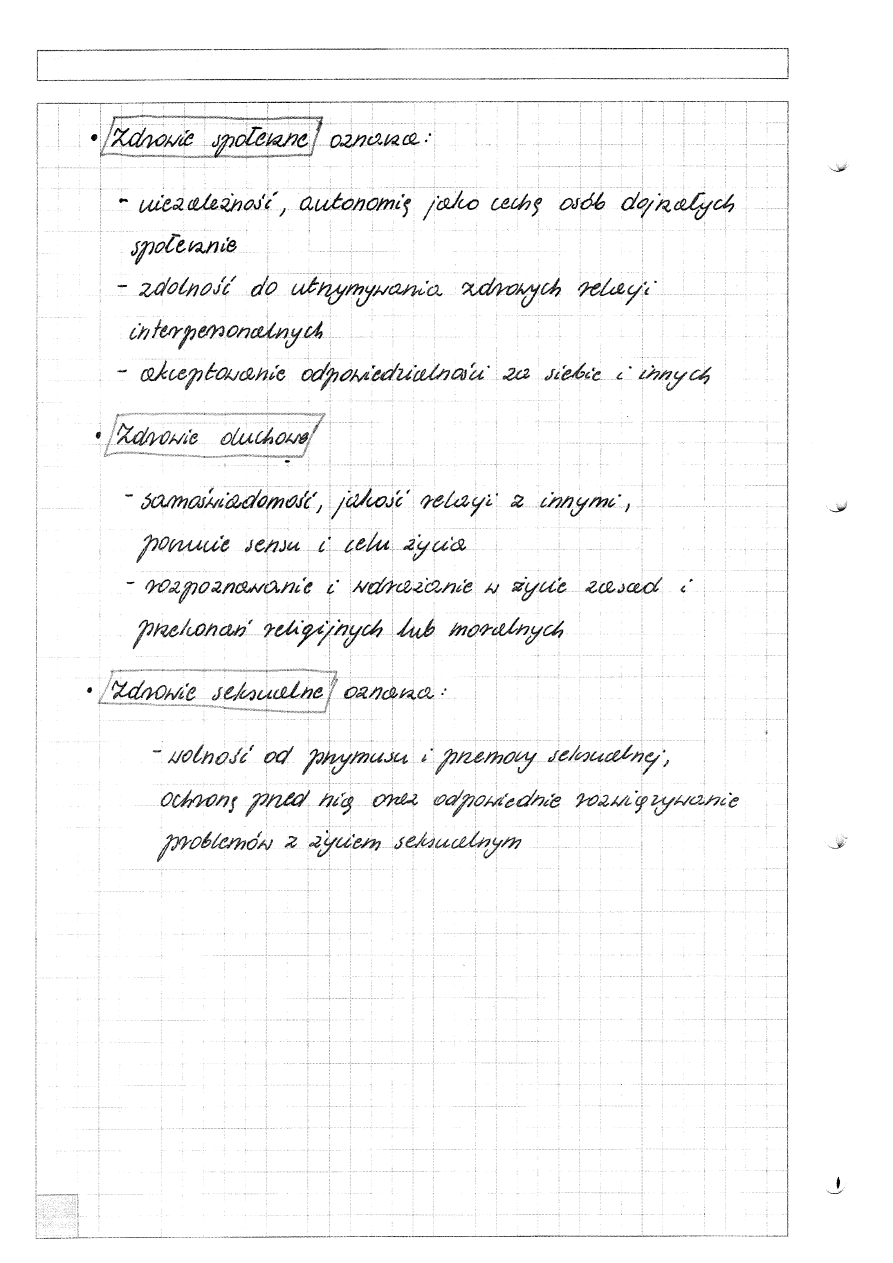 • Zdrowie społeczne oznacza:
- niezależność, autonomię jako cechę osób dojrzałych
społecznie
- zdolność do utrzymywania zdrowych relacji
interpersonalnych
- akceptowanie odpowiedzialności za siebie i innych
• Zdrowie duchowe
- samoświadomość, jakość relacji z innymi,
poczucie sensu i celu życia
- rozpoznawanie i wdrażanie w życie zasad i
przekonań religijnych lub moralnych
• Zdrowie seksualne oznacza:
- wolność od przymusu i przemocy seksualnej,
ochronę przed nią oraz odpowiednie rozwiązywanie
problemów z życiem seksualnym